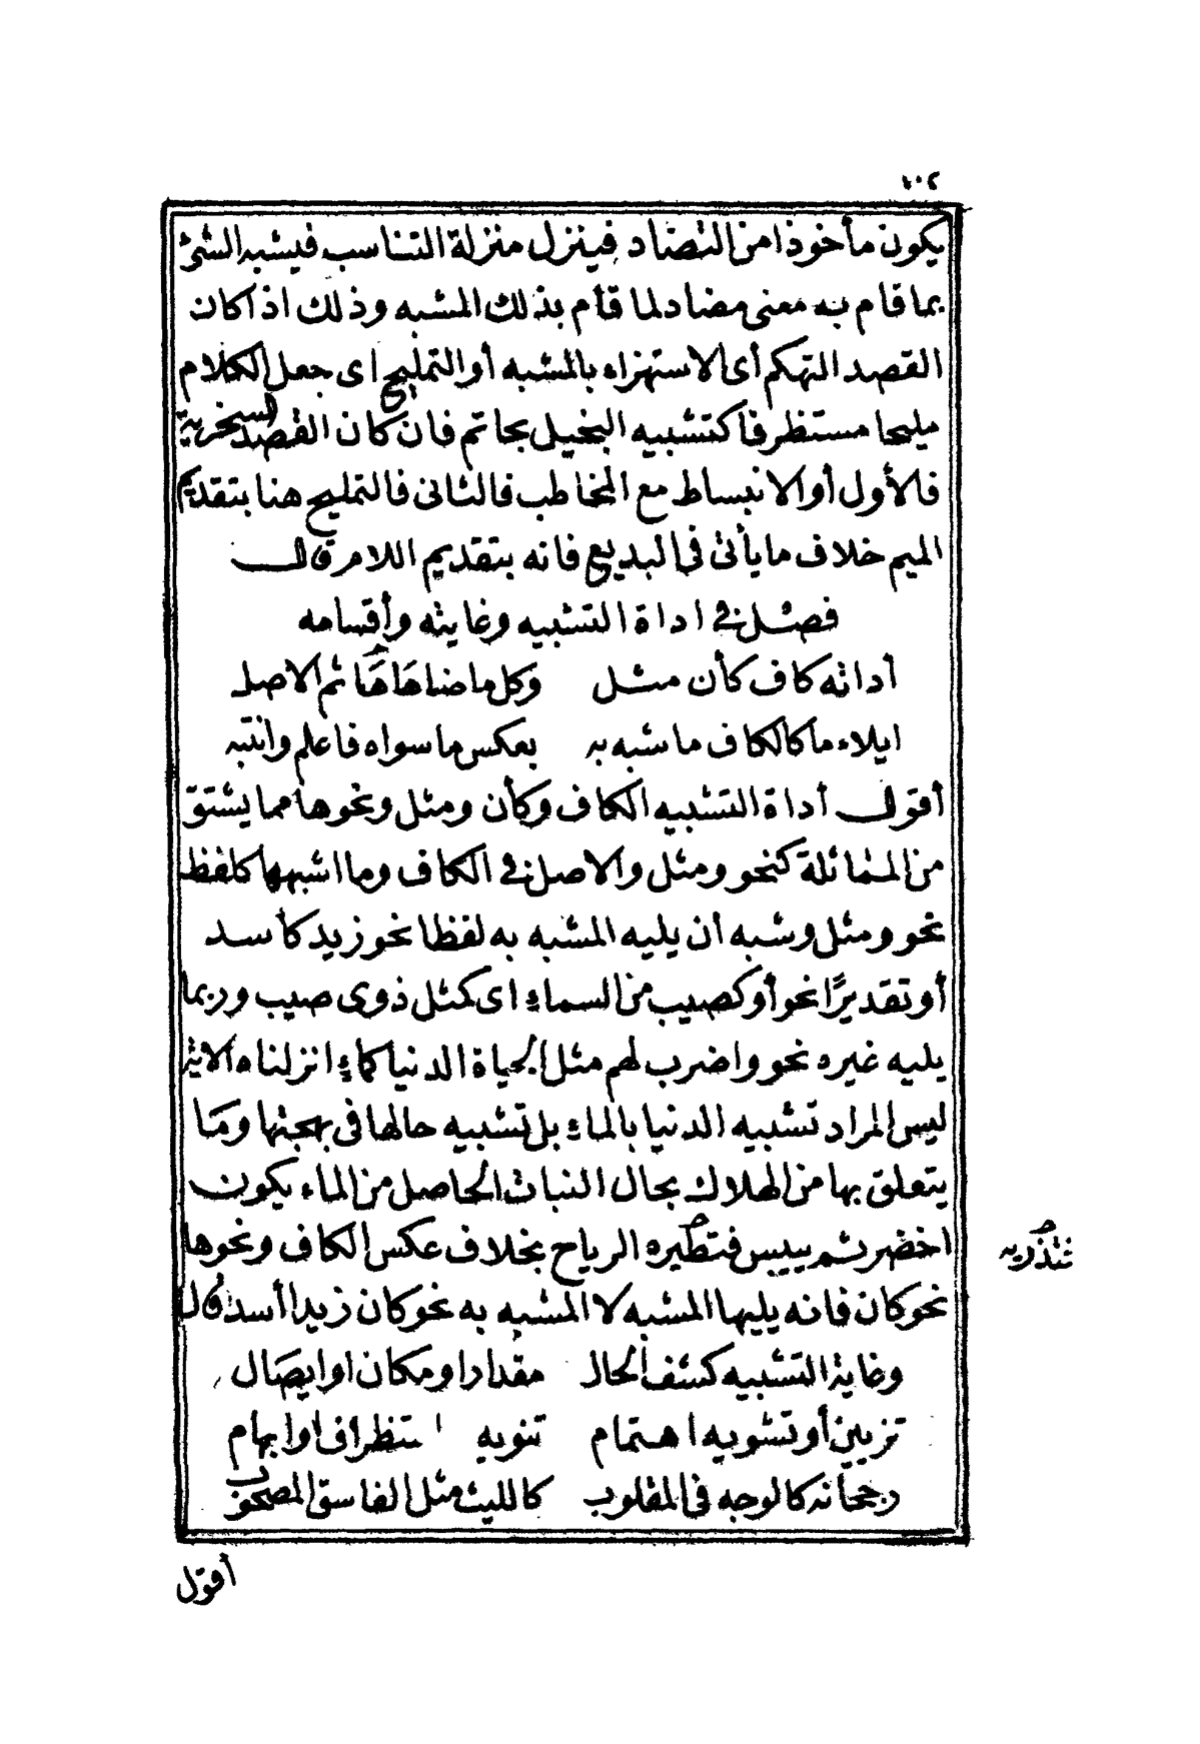 ١٠٢
يكون مأخوذا من التضاد فينزل منزلة التناسب فيشبه الشئ
بما قام به معنى مضاد لما قام بذلك المشبه وذلك اذا كان
القصد التهكم أى الاستهزاء بالمشبه أو التمليح اى جعل الكلام
مليحا مستظرفا كتشبيه البخيل بحاتم فان كان القصد السخرية
فالأول أو الانبساط مع المخاطب فالثانى فالتمليح هنا بتقديم
الميم خلاف ما يأتى فى البديع فانه بتقديم اللام قال
فصل فى اداة التشبيه وغايته وأقسامه
أداته كاف كأن مثل وكل ما ضاهاها ثم الاصل
ايلاء ما كالكاف ما شبه به بعكس ما سواه فاعلم وانتبه
أقول أداة التشبيه الكاف وكأن ومثل ونحوها مما يشتق
من المماثلة كنحو ومثل والاصل فى الكاف وما اشبهها كلفظ
نحو ومثل وشبه أن يليه المشبه به لفظا نحو زيد كأسد
أو تقديرًا نحو أو كصيب من السماء اى كمثل ذوى صيب وربما
يليه غيره نحو واضرب لهم مثل الحياة الدنيا كماء انزلناه الاية
ليس المراد تشبيه الدنيا بالماء بل تشبيه حالها فى بهجتها وما
يتعلق بها من الهلاك بحال النبات الحاصل من الماء يكون
اخضر ثم ييبس فتطيره الرياح بخلاف عكس الكاف ونحوها
تتذريه
نحو كان فانه يليها المشبه لا المشبه به نحو كان زيدا أسد قال
وغاية التشبيه كشف الحال مقدارا ومكان او ايصال
تزيين أو تشويه اهتمام تنويه استظراف او ايهام
رجحانه كالوجه فى المقلوب كالليث مثل الفاسق المصحوب
أقول